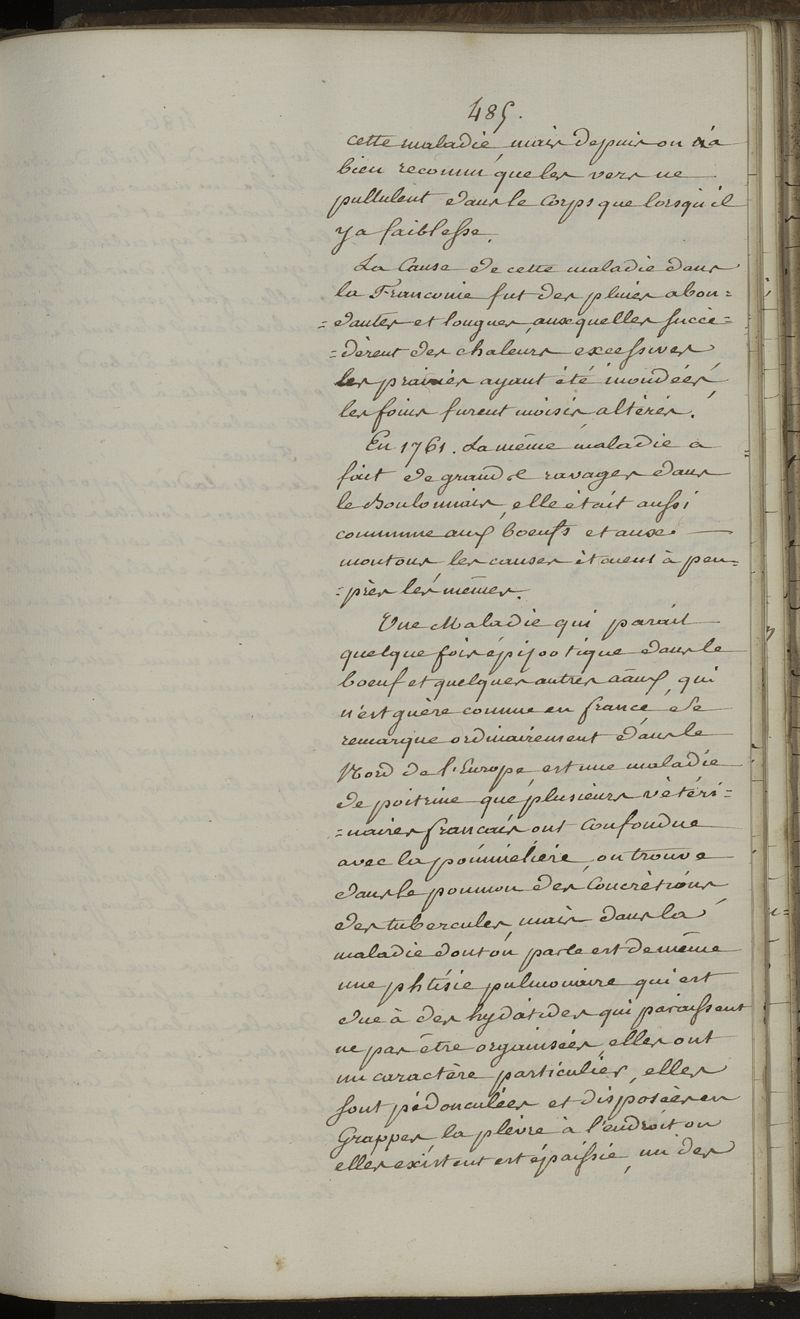 485.
cette maladie mais depuis on n'a
bien reconnu que les vers ne
pullulent dans le Corps que lorsqu'il
y a faiblesse.
La Cause de cette maladie dans
la Franconie fut des pluies abon=
=dantes et longues, auxquelles succé=
=dèrent des chaleurs excessives
les prairies ayant été inondées
les foins furent moisis altérés.
En 1761. La même maladie a
fait de grand ravages dans
le Boulonnais, elle était aussi
commune aux boeufs et aux
moutons les causes étaient à peu=
=près les mêmes.
Une Maladie qui parait
quelque fois épizootique dans le
boeuf et quelques autres aãux, qui
n'est guère connue en france, se
remarque ordinairement dans le
Nord de l'Europe est une maladie
de poitrine que plusieurs vétéri=
=naires francais ont confondue
avec la pommelière, on trouve
dans le poumon des Concrétions
des tubercules, mais dans la
maladie dont on parle est de même
une phtisie pulmonaire qui est
due à des hydatides qui paraissent
ne pas être organisées, elles ont
un caractère particulier, elles
sont pédonculées et disposées en
Grappes, la plèvre à l'endroit ou
elles existent est épaissie, un des